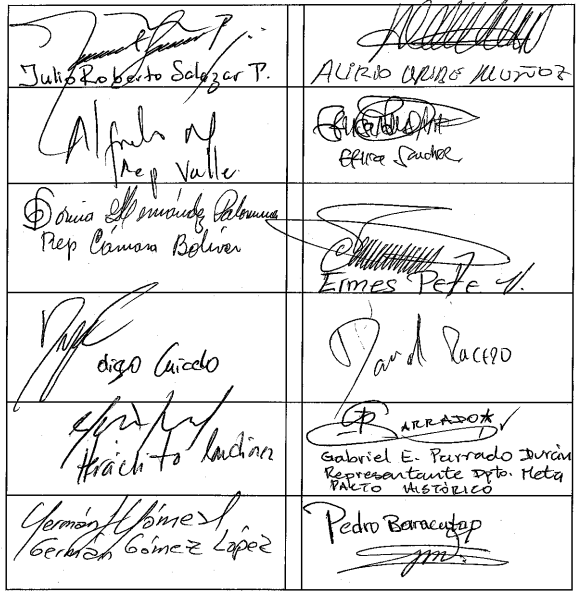 Julio Roberto Salazar P.
ALIRIO URIBE MUÑOZ
Alfredo
Rep Valle
Sanchez
Dorina Hernández Palomino
Rep Cámara Bolívar
Ermes Pete V.
diego Caicedo
David Racero
Heráclito Landinez
PARRADO
Gabriel E. Parrado Durán
Representante Dpto. Meta
PACTO HISTÓRICO
Germán Gómez L
Germán Gómez López
Pedro Baracutao